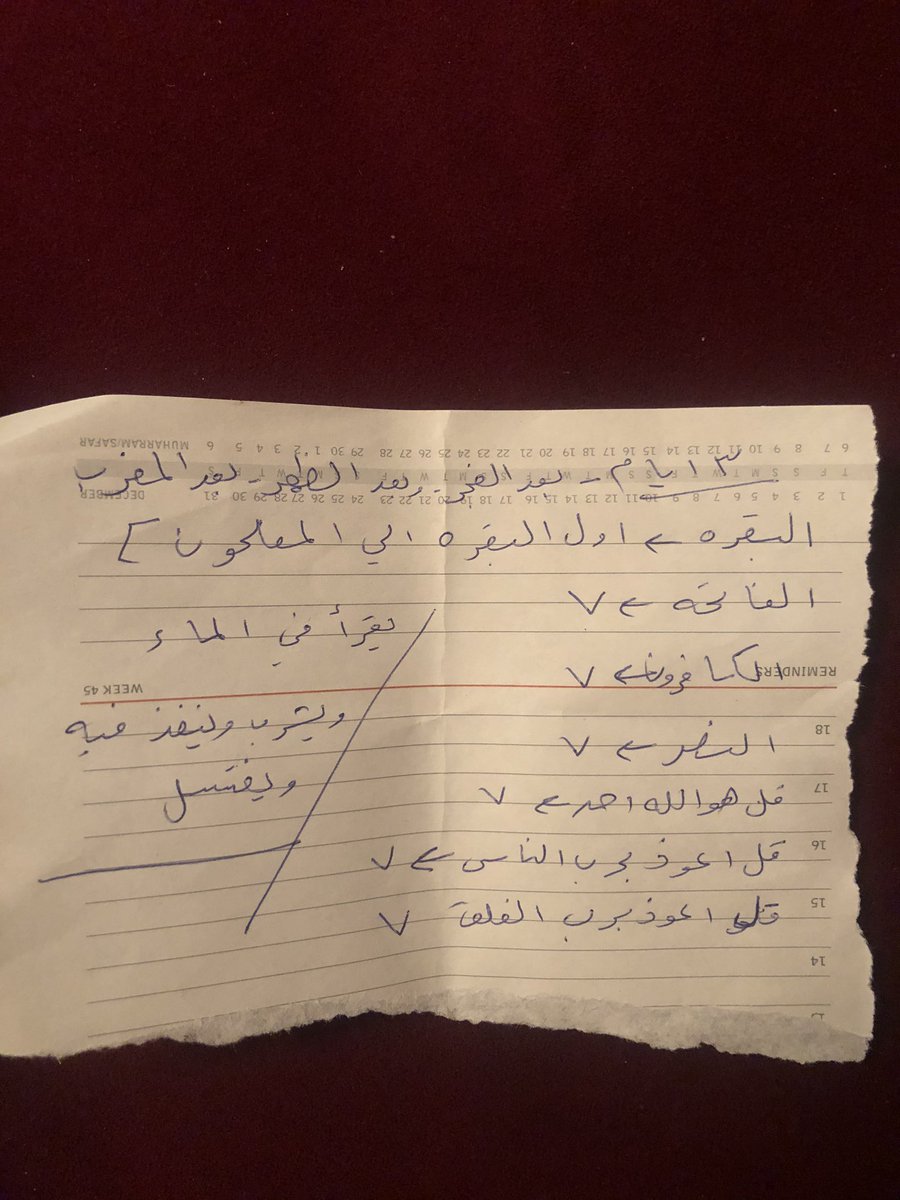 ٣ ايام - بعد الفجر - وبعد الظهر - بعد المغرب
البقره ← اول البقره الي المفلحون
الفاتحه ← ٧
الكافرون ← ٧
النصر ← ٧
قل هو الله احد ← ٧
قل اعوذ برب الناس ← ٧
قل اعوذ برب الفلق ٧
يقرأ في الماء
ويشرب وينفذ فيه
ويغتسل
MUHARRAM/SAFAR 6 5 4 3 2 1 30 29 28 27 26 25 24 23 22 21 20 19 18 17 16 15 14 13 12 11 10 9 8 7 6
DECEMBER 31 30 29 28 27 26 25 24 23 22 21 20 19 18 17 16 15 14 13 12 11 10 9 8 7 6 5 4 3 2 1
REMINDERS
WEEK 45
18
17
16
15
14